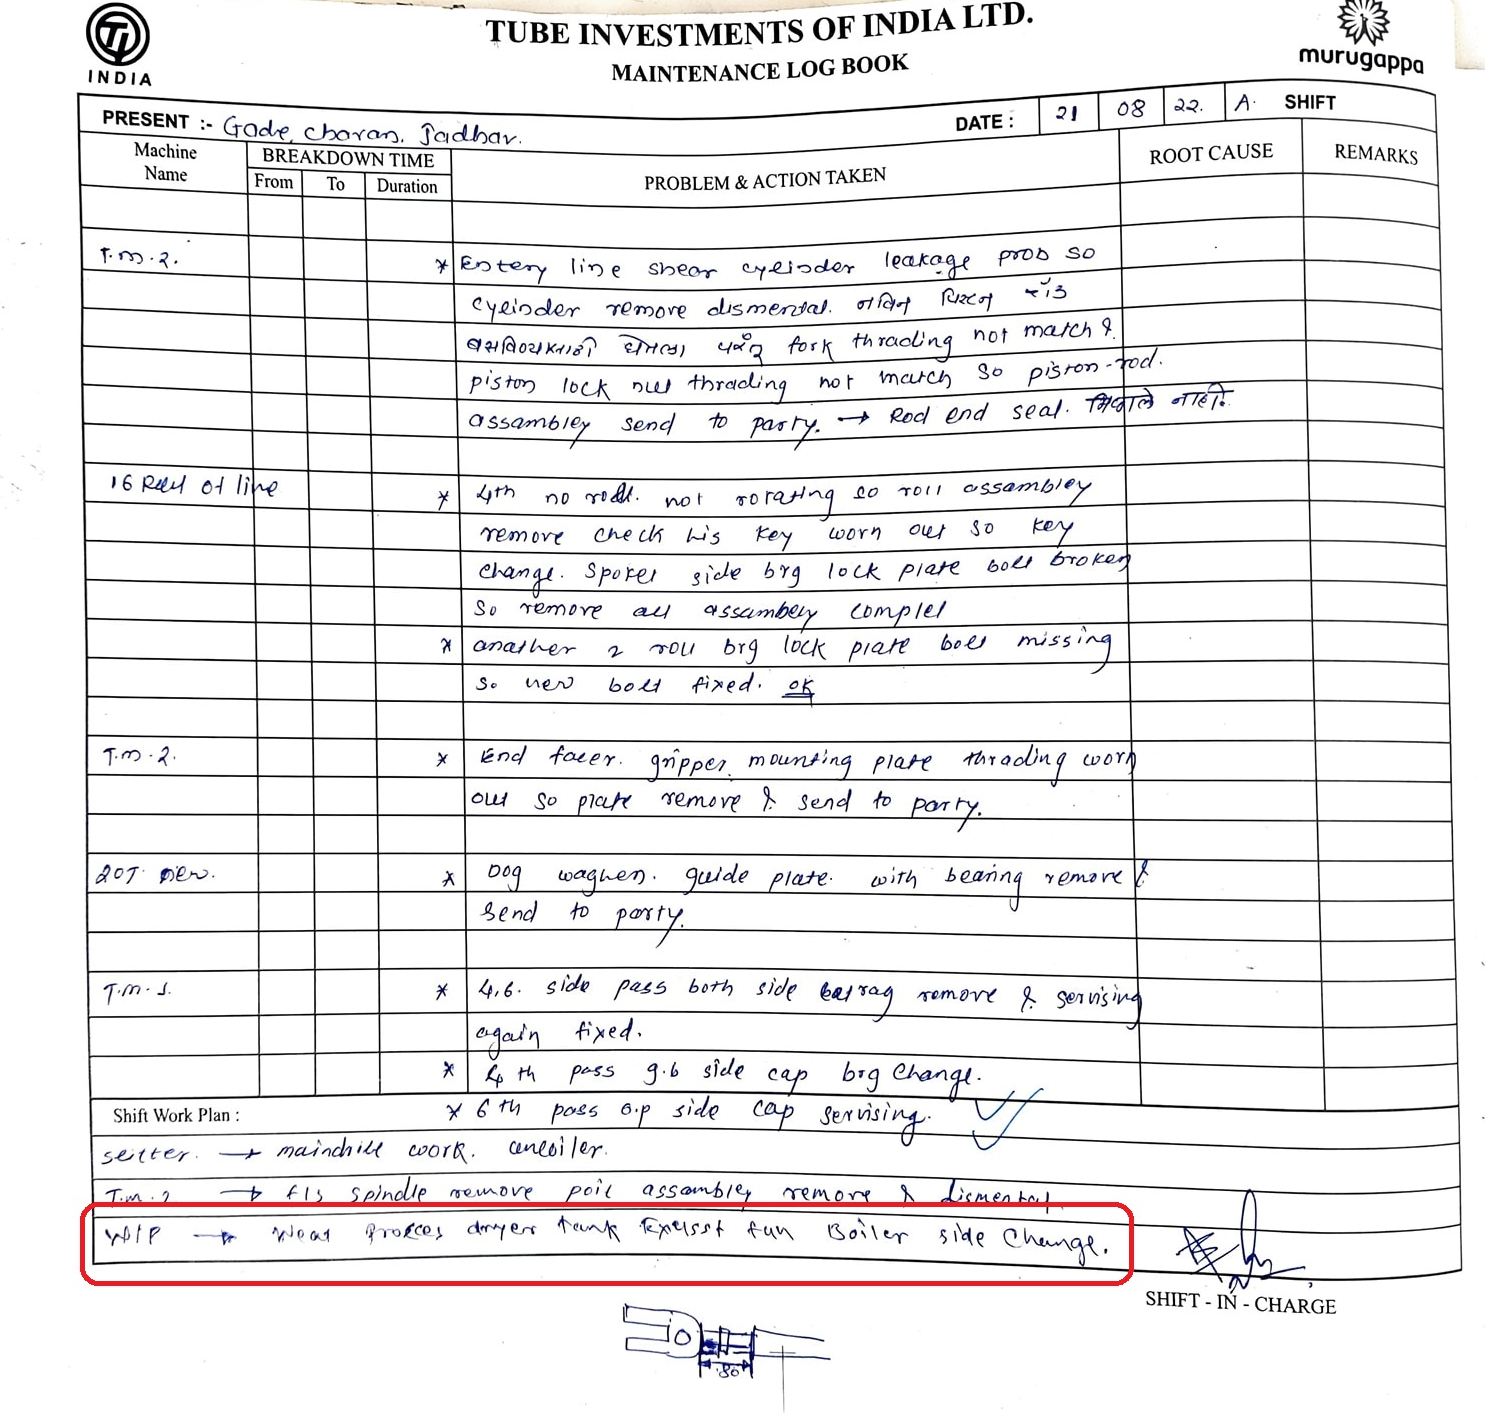 TI
INDIA
TUBE INVESTMENTS OF INDIA LTD.
MAINTENANCE LOG BOOK
murugappa
PRESENT :- Gade, charan, Jadhav.
DATE : 21 08 22. A. SHIFT
Machine Name
BREAKDOWN TIME
From To Duration
PROBLEM & ACTION TAKEN
ROOT CAUSE
REMARKS
T.m.2. * Entery line shear cyelinder leakage prob so
cyelinder remove dismental. नविन पिस्टन रॉड
fork thrading not match &
piston lock nut thrading not match so piston-rod.
assambley send to party. → Rod end seal. मिळाले नाही.
16 Reel of line * 4th no roll. not rotating so roll assambley
remove check his key worn out so key
change. Spokes side brg lock plate bolt broken
So remove all assambely complet
* anather 2 roll brg lock plate bolt missing
so new bolt fixed. OK
T.m.2. * End facer. gripper mounting plate thrading worn
out so plate remove & send to party.
20T new. * Dog waghen. guide plate. with bearing remove &
send to party.
T.m.1. * 4,6. side pass both side remove & servising
again fixed.
* 4th pass g.b side cap brg change.
Shift Work Plan : * 6th pass o.p side cap servising.
→ work.
T.m.2 → spindle remove assambley remove & dismental
→ dryer tank fan Boiler side Change.
SHIFT - IN - CHARGE
80